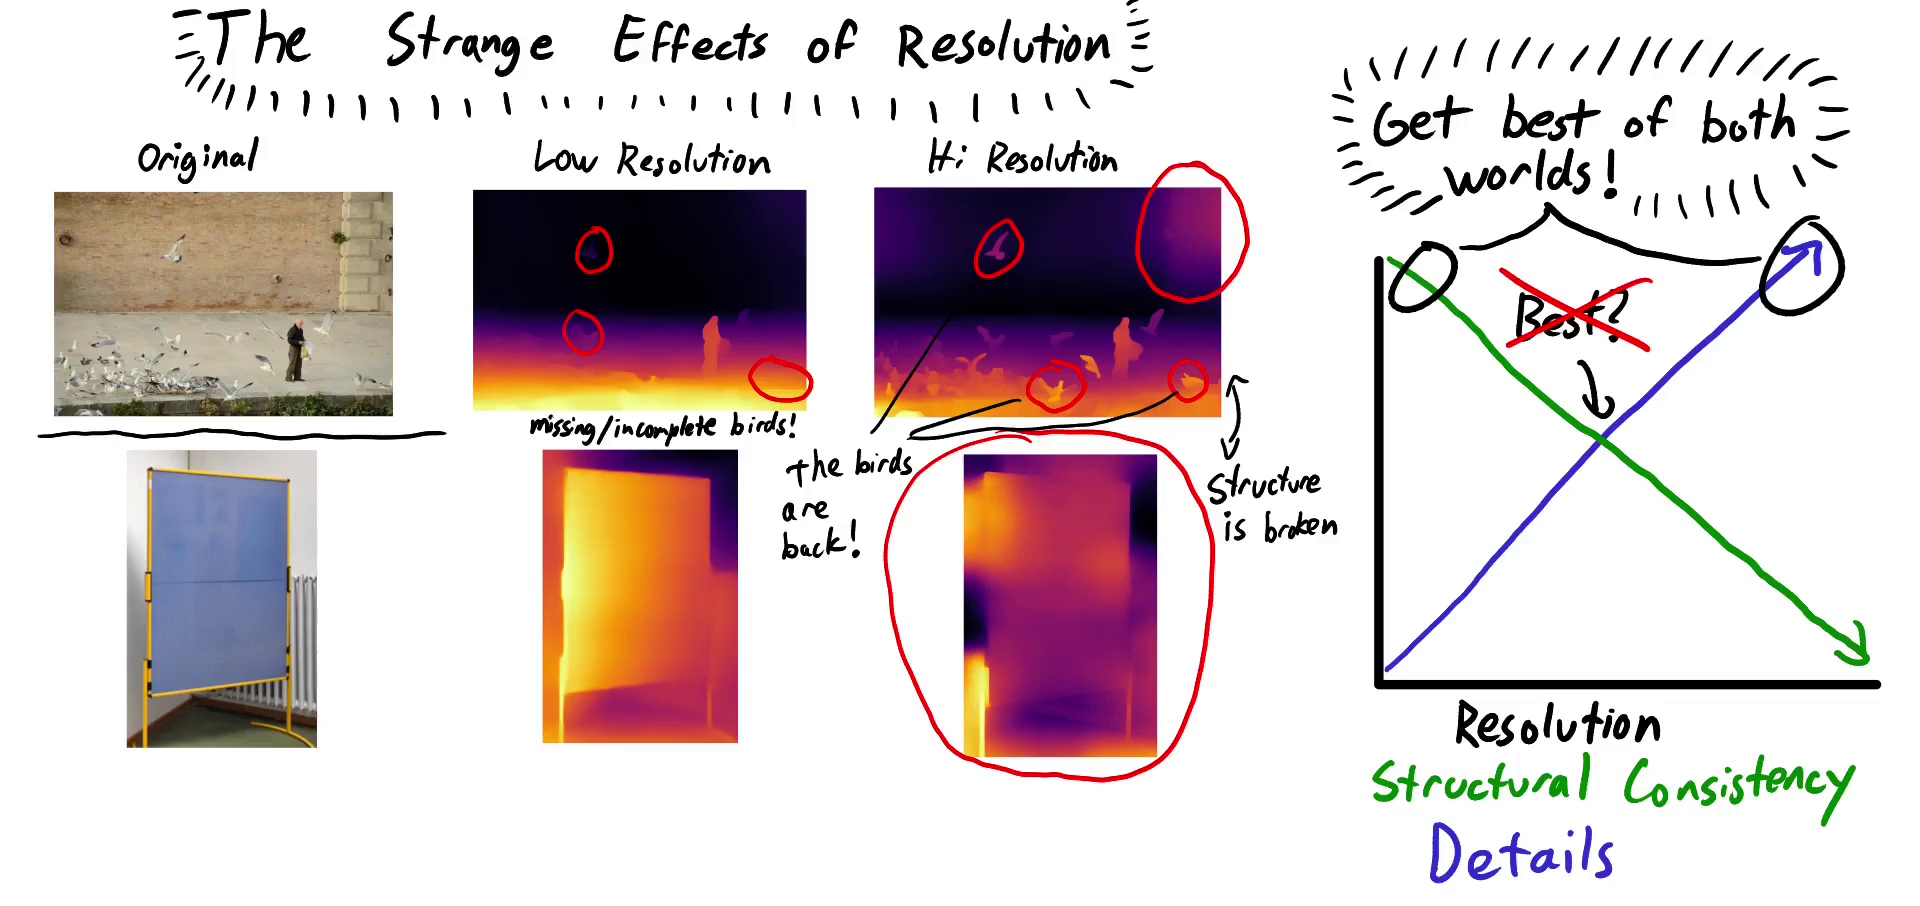 The Strange Effects of Resolution
Original
Low Resolution
Hi Resolution
missing/incomplete birds!
the birds
are
back!
Structure
is broken
Get best of both
worlds!
Best?
Resolution
Structural Consistency
Details